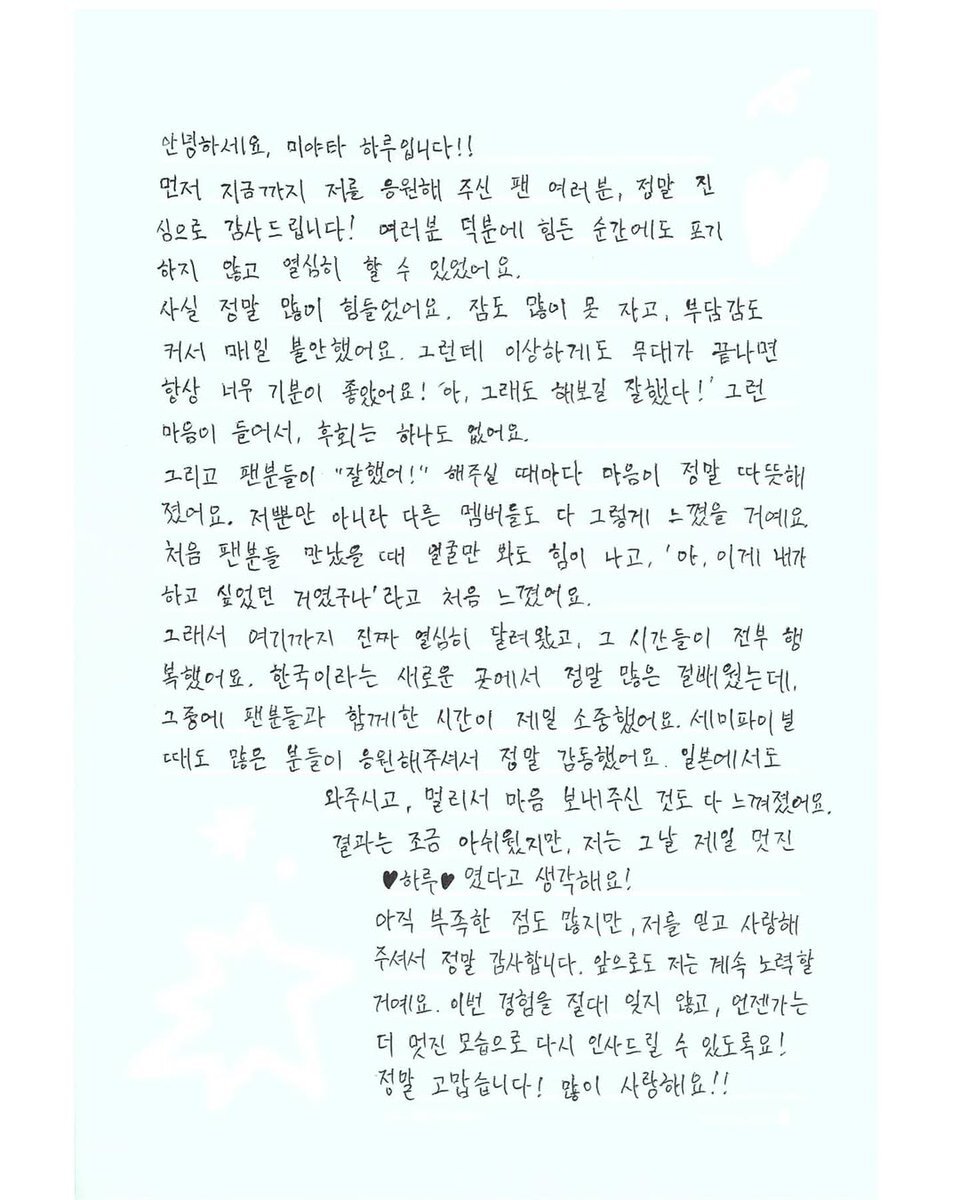 안녕하세요, 미야타 하루입니다!!
먼저 지금까지 저를 응원해 주신 팬 여러분, 정말 진
심으로 감사드립니다! 여러분 덕분에 힘든 순간에도 포기
하지 않고 열심히 할 수 있었어요.
사실 정말 많이 힘들었어요. 잠도 많이 못 자고, 부담감도
커서 매일 불안했어요. 그런데 이상하게도 무대가 끝나면
항상 너무 기분이 좋았어요! '아, 그래도 해보길 잘했다!' 그런
마음이 들어서, 후회는 하나도 없어요.
그리고 팬분들이 "잘했어!" 해주실 때마다 마음이 정말 따뜻해
졌어요. 저뿐만 아니라 다른 멤버들도 다 그렇게 느꼈을 거예요.
처음 팬분들 만났을 때 얼굴만 봐도 힘이 나고, '아, 이게 내가
하고 싶었던 거였구나'라고 처음 느꼈어요.
그래서 여기까지 진짜 열심히 달려왔고, 그 시간들이 전부 행
복했어요. 한국이라는 새로운 곳에서 정말 많은 걸배웠는데,
그중에 팬분들과 함께한 시간이 제일 소중했어요. 세미파이널
때도 많은 분들이 응원해주셔서 정말 감동했어요. 일본에서도
와주시고, 멀리서 마음 보내주신 것도 다 느껴졌어요.
결과는 조금 아쉬웠지만, 저는 그날 제일 멋진
♥하루♥ 였다고 생각해요!
아직 부족한 점도 많지만, 저를 믿고 사랑해
주셔서 정말 감사합니다. 앞으로도 저는 계속 노력할
거예요. 이번 경험을 절대 잊지 않고, 언젠가는
더 멋진 모습으로 다시 인사드릴 수 있도록요!
정말 고맙습니다! 많이 사랑해요!!